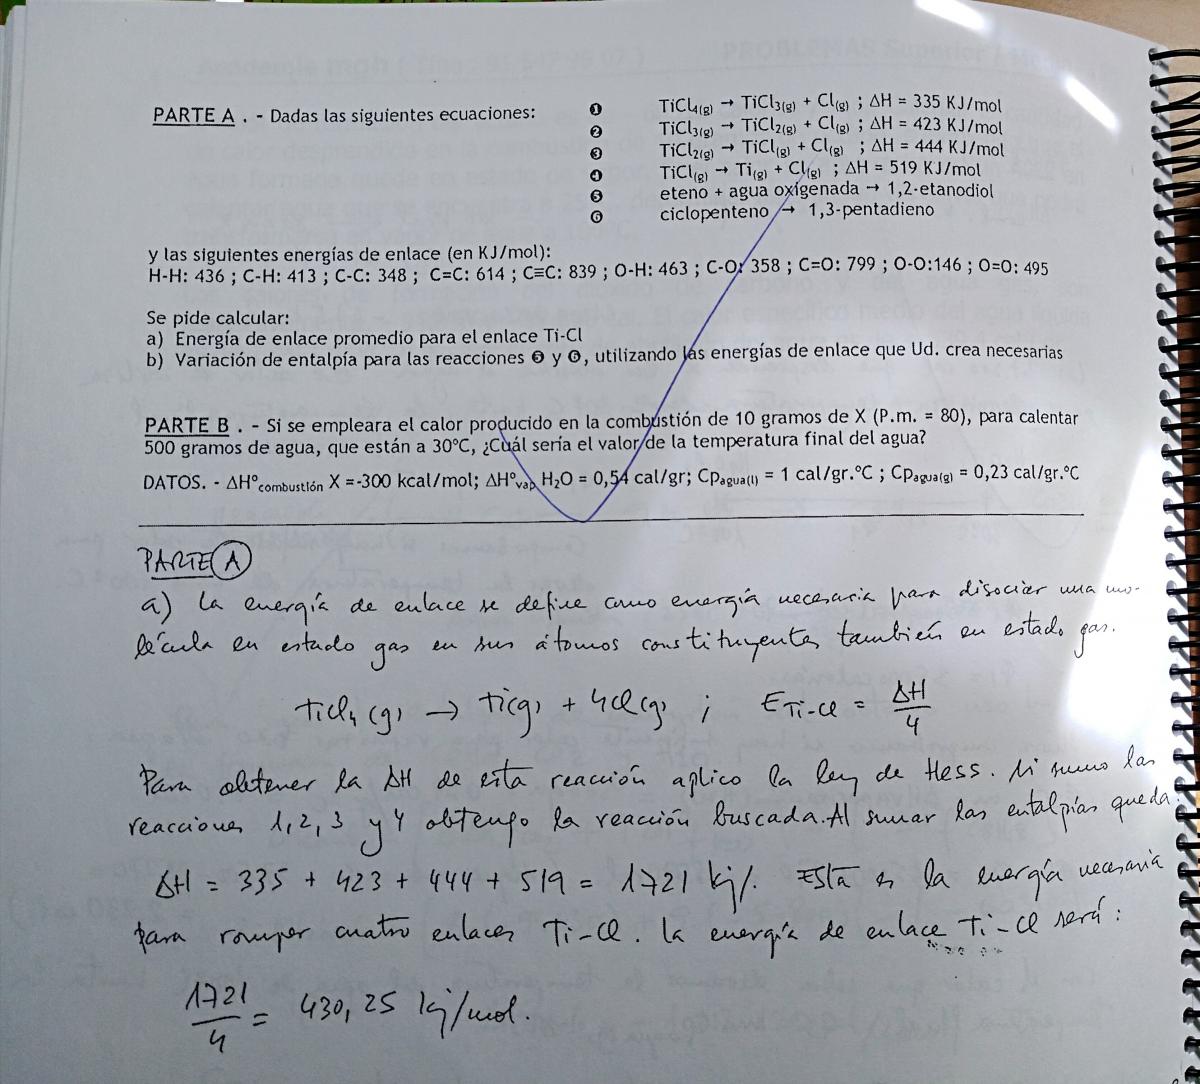 PARTE A . - Dadas las siguientes ecuaciones:
❶ TiCl4(g) → TiCl3(g) + Cl(g) ; ΔH = 335 KJ/mol
❷ TiCl3(g) → TiCl2(g) + Cl(g) ; ΔH = 423 KJ/mol
❸ TiCl2(g) → TiCl(g) + Cl(g) ; ΔH = 444 KJ/mol
❹ TiCl(g) → Ti(g) + Cl(g) ; ΔH = 519 KJ/mol
❺ eteno + agua oxigenada → 1,2-etanodiol
❻ ciclopenteno → 1,3-pentadieno
y las siguientes energías de enlace (en KJ/mol):
H-H: 436 ; C-H: 413 ; C-C: 348 ; C=C: 614 ; C≡C: 839 ; O-H: 463 ; C-O: 358 ; C=O: 799 ; O-O:146 ; O=O: 495
Se pide calcular:
a) Energía de enlace promedio para el enlace Ti-Cl
b) Variación de entalpía para las reacciones ❺ y ❻, utilizando las energías de enlace que Ud. crea necesarias
PARTE B . - Si se empleara el calor producido en la combustión de 10 gramos de X (P.m. = 80), para calentar
500 gramos de agua, que están a 30ºC, ¿Cuál sería el valor de la temperatura final del agua?
DATOS. - ΔHºcombustión X =-300 kcal/mol; ΔHºvap H2O = 0,54 cal/gr; Cpagua(l) = 1 cal/gr.ºC ; Cpagua(g) = 0,23 cal/gr.ºC
PARTE A
a) La energía de enlace se define como energía necesaria para disociar una mo-
lécula en estado gas en sus átomos constituyentes también en estado gas.
TiCl4 (g) → Ti(g) + 4Cl(g) ; E Ti-Cl = ΔH/4
Para obtener la ΔH de esta reacción aplico la ley de Hess. Si sumo las
reacciones 1, 2, 3 y 4 obtengo la reacción buscada. Al sumar las entalpías queda:
ΔH = 335 + 423 + 444 + 519 = 1721 kj/. Esta es la energía necesaria
para romper cuatro enlaces Ti-Cl. La energía de enlace Ti-Cl será:
1721/4 = 430,25 kj/mol.